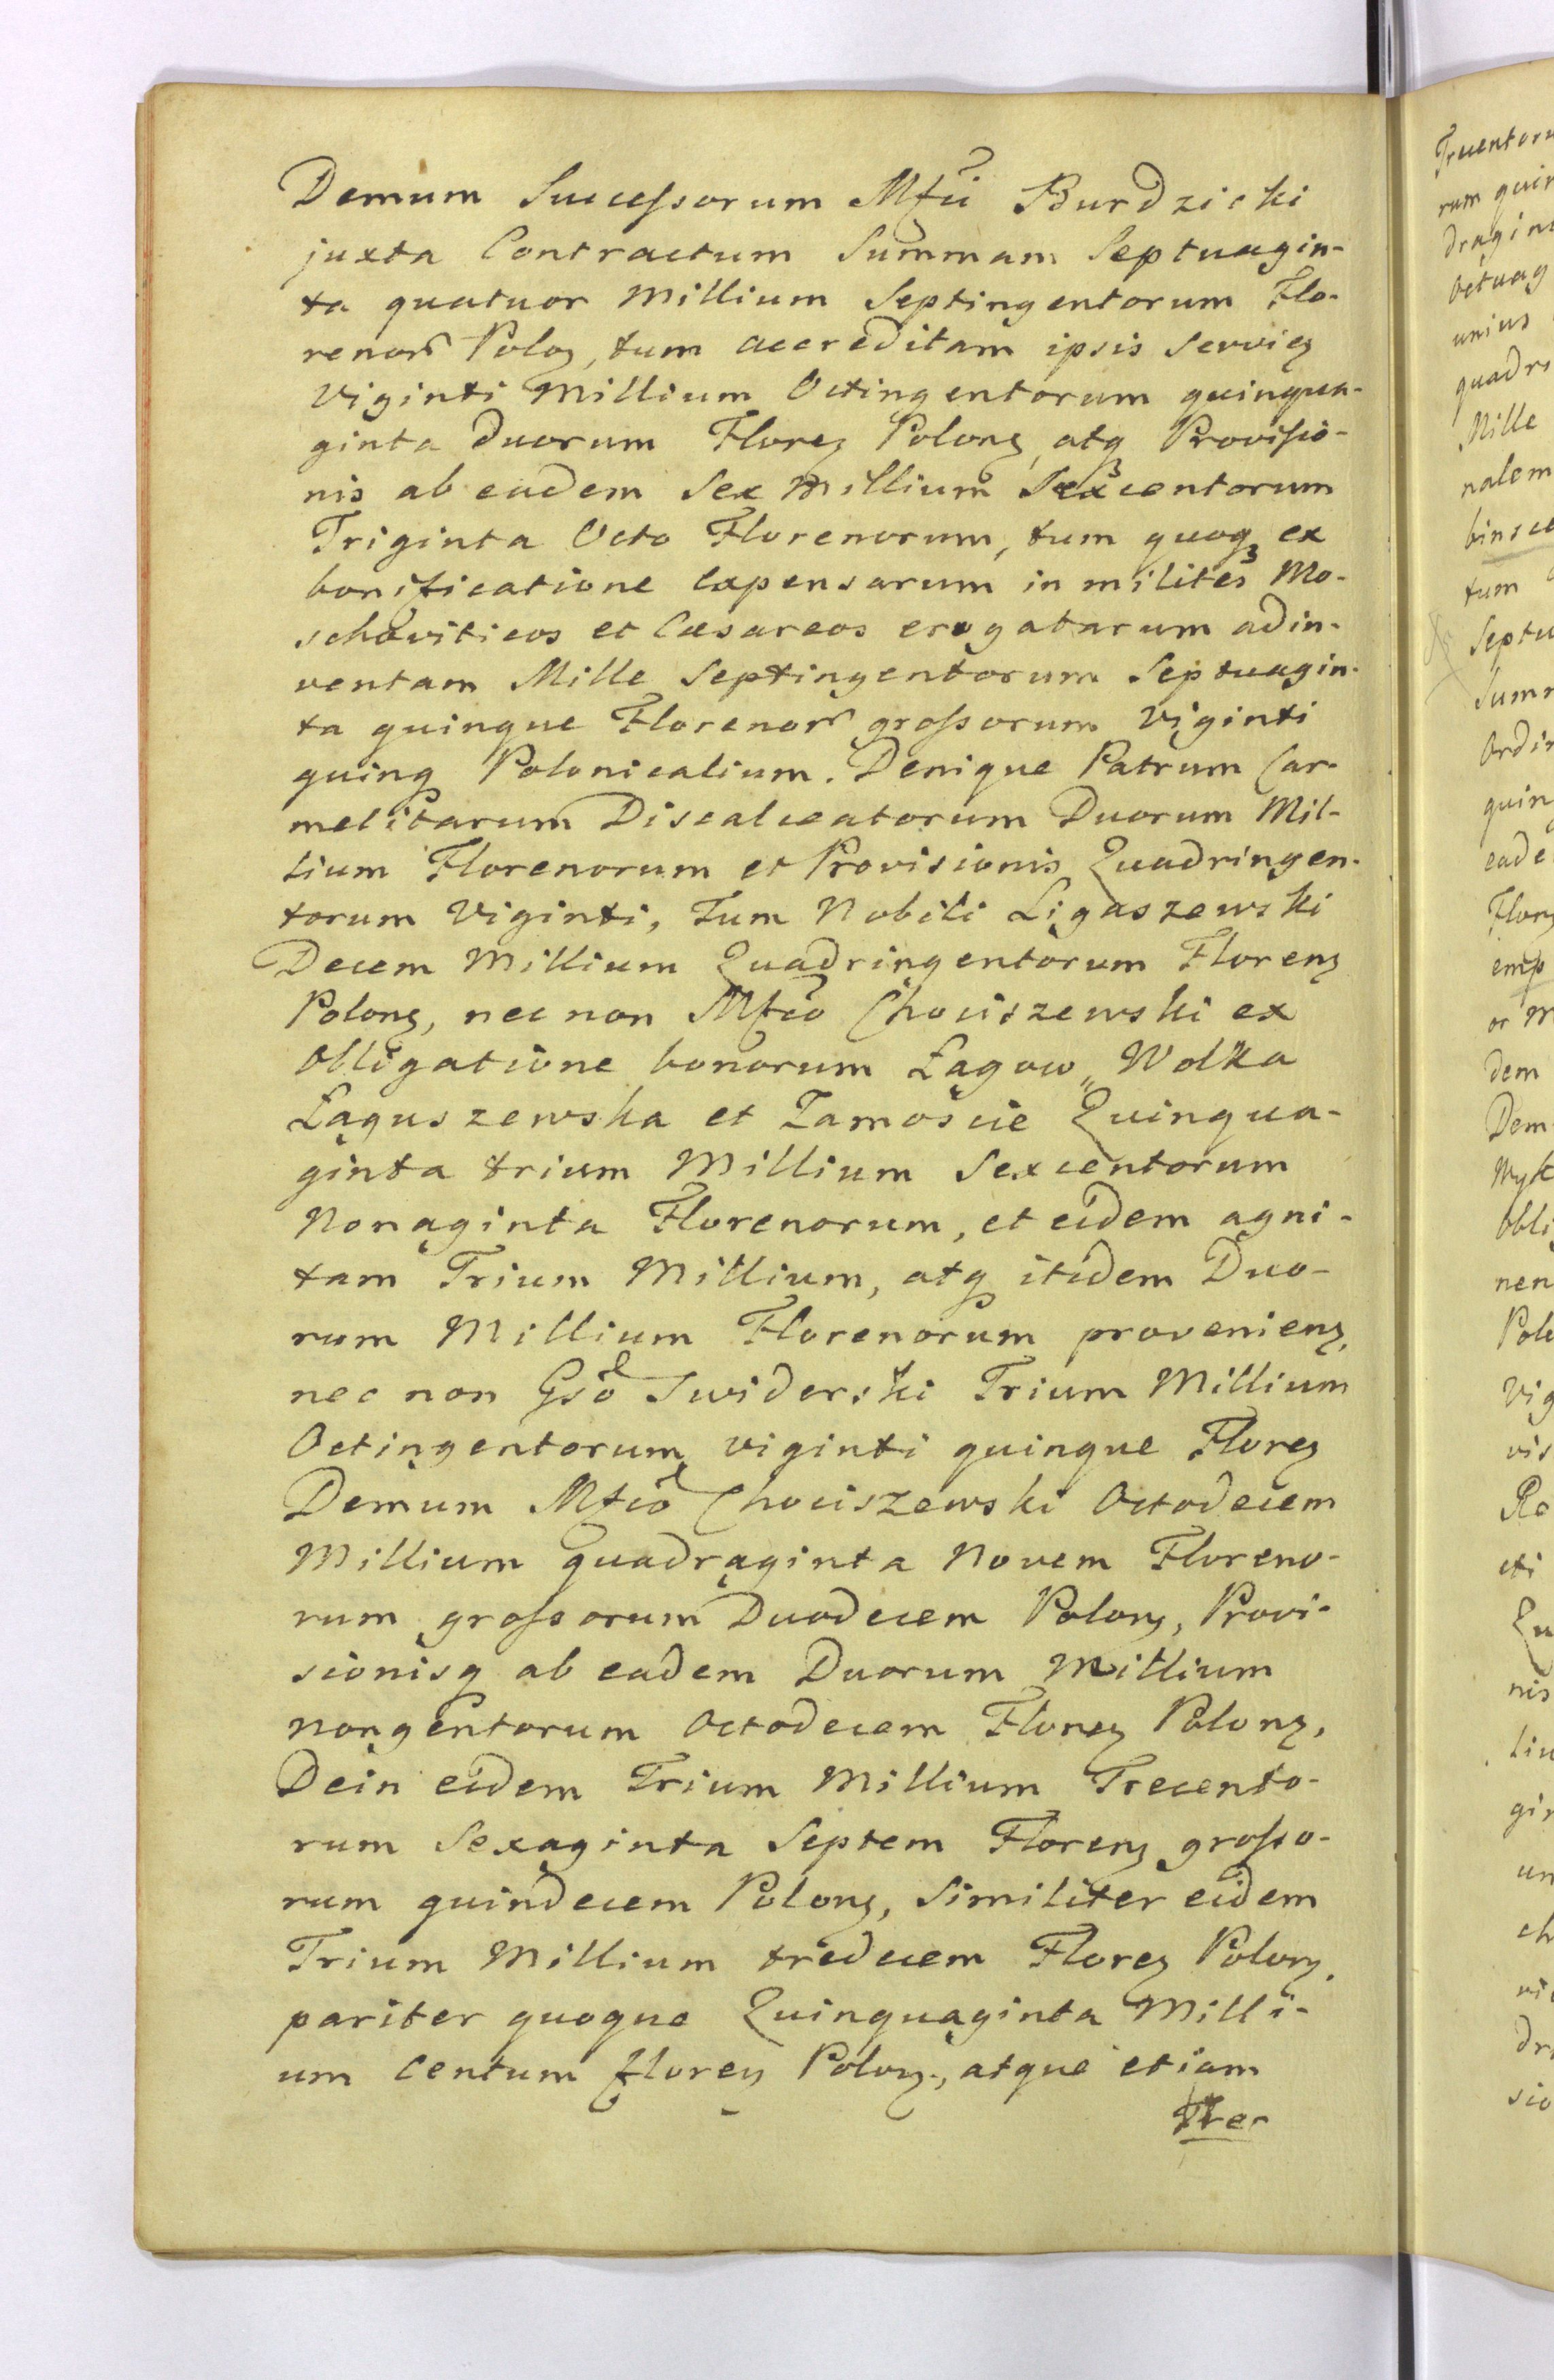 Demum Successorum Mfci Burdzicki
juxta Contractum Summam Septuagin-
ta quatuor Millium Septingentorum Flo-
renor Poloꝫ, tum accreditam ipsis Servicꝫ
Viginti Millium Octingentorum quinqua-
ginta Duorum Floreꝫ Polonꝫ, atqꝫ Provisio-
nis ab eadem Sex Millium Sexcentorum
Triginta Octo Florenorum, tum quoqꝫ ex
bonificatione expensarum in milites Mo-
schoviticos et Cæsareos erogatarum adin-
ventam Mille Septingentorum Septuagin-
ta quinque Florenor grossorum Viginti
quinqꝫ Polonicalium. Denique Patrum Car-
melitarum Discalceatorum Duorum Mil-
lium Florenorum et Provisionis Quadringen-
torum Viginti, Tum Nobili Ligaszewski
Decem Millium Quadringentorum Florenꝫ
Polonꝫ, nec non Mfco Chociszewski ex
Obligatione bonorum Łągow„ Wolka
Łąguszewska et Zamoscie Quinqua-
ginta trium Millium Sexcentorum
Nonaginta Florenorum, et eidem agni-
tam Trium Millium, atqꝫ itidem Duo-
rum Millium Florenorum provenienꝫ,
nec non Gso Swiderski Trium Millium
Octingentorum viginti quinque Floreꝫ
Demum Mfco Chociszewski Octodecem
Millium quadraginta Novem Floreno-
rum grossorum Duodecem Polonꝫ, Provi-
sionisqꝫ ab eadem Duorum Millium
Nongentorum Octodecem Floreꝫ Polonꝫ,
Dein eidem Trium Millium Trecento-
rum Sexaginta Septem Florenꝫ grosso-
rum quindecem Polonꝫ, Similiter eidem
Trium Millium tredecem Floreꝫ Polonꝫ,
pariter quoque Quinquaginta Milli-
um Centum floreꝫ Polonꝫ, atque etiam
Trec